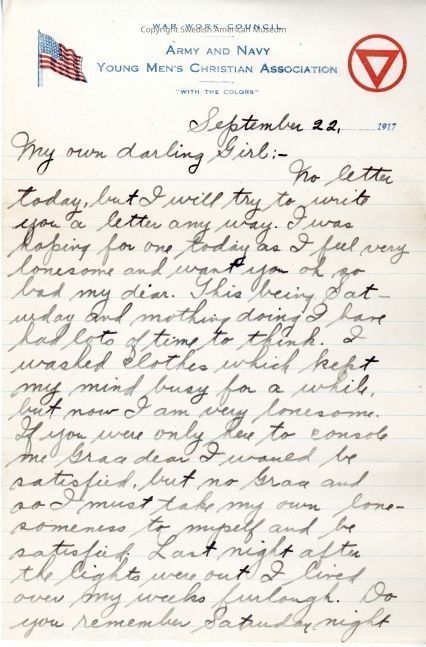 WAR WORK COUNCIL
Copyright Swedish American Museum
ARMY AND NAVY
YOUNG MEN'S CHRISTIAN ASSOCIATION
"WITH THE COLORS"
September 22, 1917
My own darling Girl:-
No letter
today, but I will try to write
you a letter any way. I was
hoping for one today as I feel very
lonesome and want you oh so
bad my dear. This being Sat-
urday and nothing doing I have
had lots of time to think. I
washed clothes which kept
my mind busy for a while,
but now I am very lonesome.
If you were only here to console
me Grace dear I would be
satisfied, but no Grace and
so I must take my own lone-
someness to myself and be
satisfied. Last night after
the lights were out I lived
over my weeks furlough. Do
you remember Saturday night